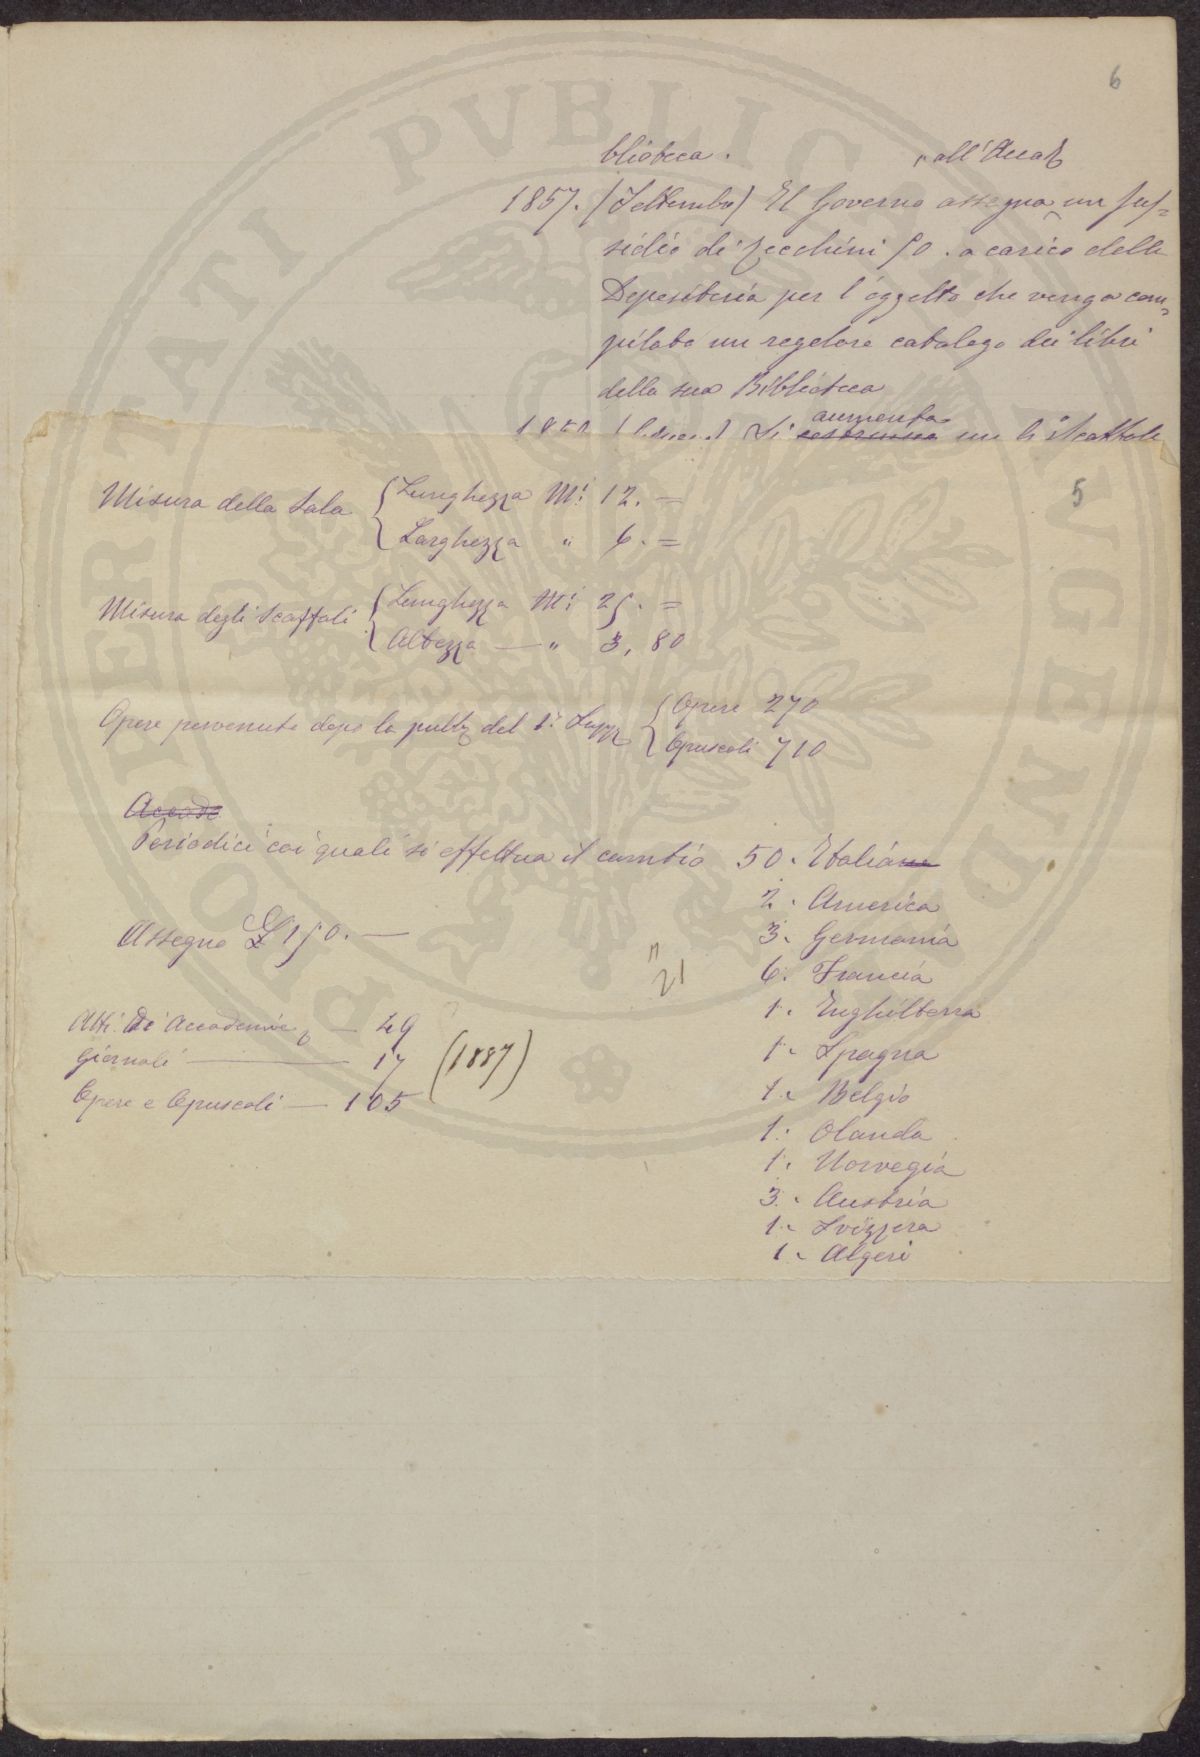 6
blioteca. all'Accad
1857. (Settembre) Il Governo assegna un sus=
sidio di Zecchini 50. a carico della
Depositeria per l'oggetto che venga com=
pilato un regolare catalogo dei libri
della sua Biblioteca
Si aumenta un 1° Scaffale
5
Misura della Sala Lunghezza M.i 12. =
Larghezza " 6. =
Misura degli Scaffali Lunghezza M.i 25. =
Altezza — " 3,80
Opere pervenute dopo la pubbz del 1.° Suppz Opere 270
Opuscoli 710
Accade
Periodici coi quali si effettua il cambio 50. Italiane
2. America
Assegno £ 150. —
3. Germania
21
6. Francia
1. Inghilterra
Atti di Accademie — 49
giornali — 17 (1887)
Opere e Opuscoli — 105
1. Spagna
1. Belgio
1. Olanda
1. Norvegia
3. Austria
1. Svizzera
1. Algeri
PROSPERITATI PVBLICAE AVGENDAE